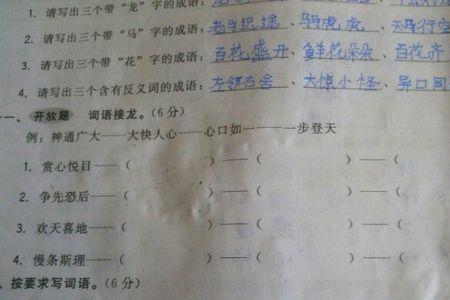 1. 请写出三个带“龙”字的成语:
2. 请写出三个带“马”字的成语: 老马识途、马马虎虎、天马行空
3. 请写出三个带“花”字的成语: 百花盛开、鲜花朵朵、百花齐
4. 请写出三个含有反义词的成语: 左邻右舍、大惊小怪、异口同
一、开放题 词语接龙。(6分)
例: 神通广大——大快人心——心口如一——一步登天
1. 赏心悦目——( )—( )—(
2. 争先恐后——( )—( )—(
3. 欢天喜地——( )—( )—(
4. 慢条斯理——( )—( )—(
、按要求写词语。(6分)